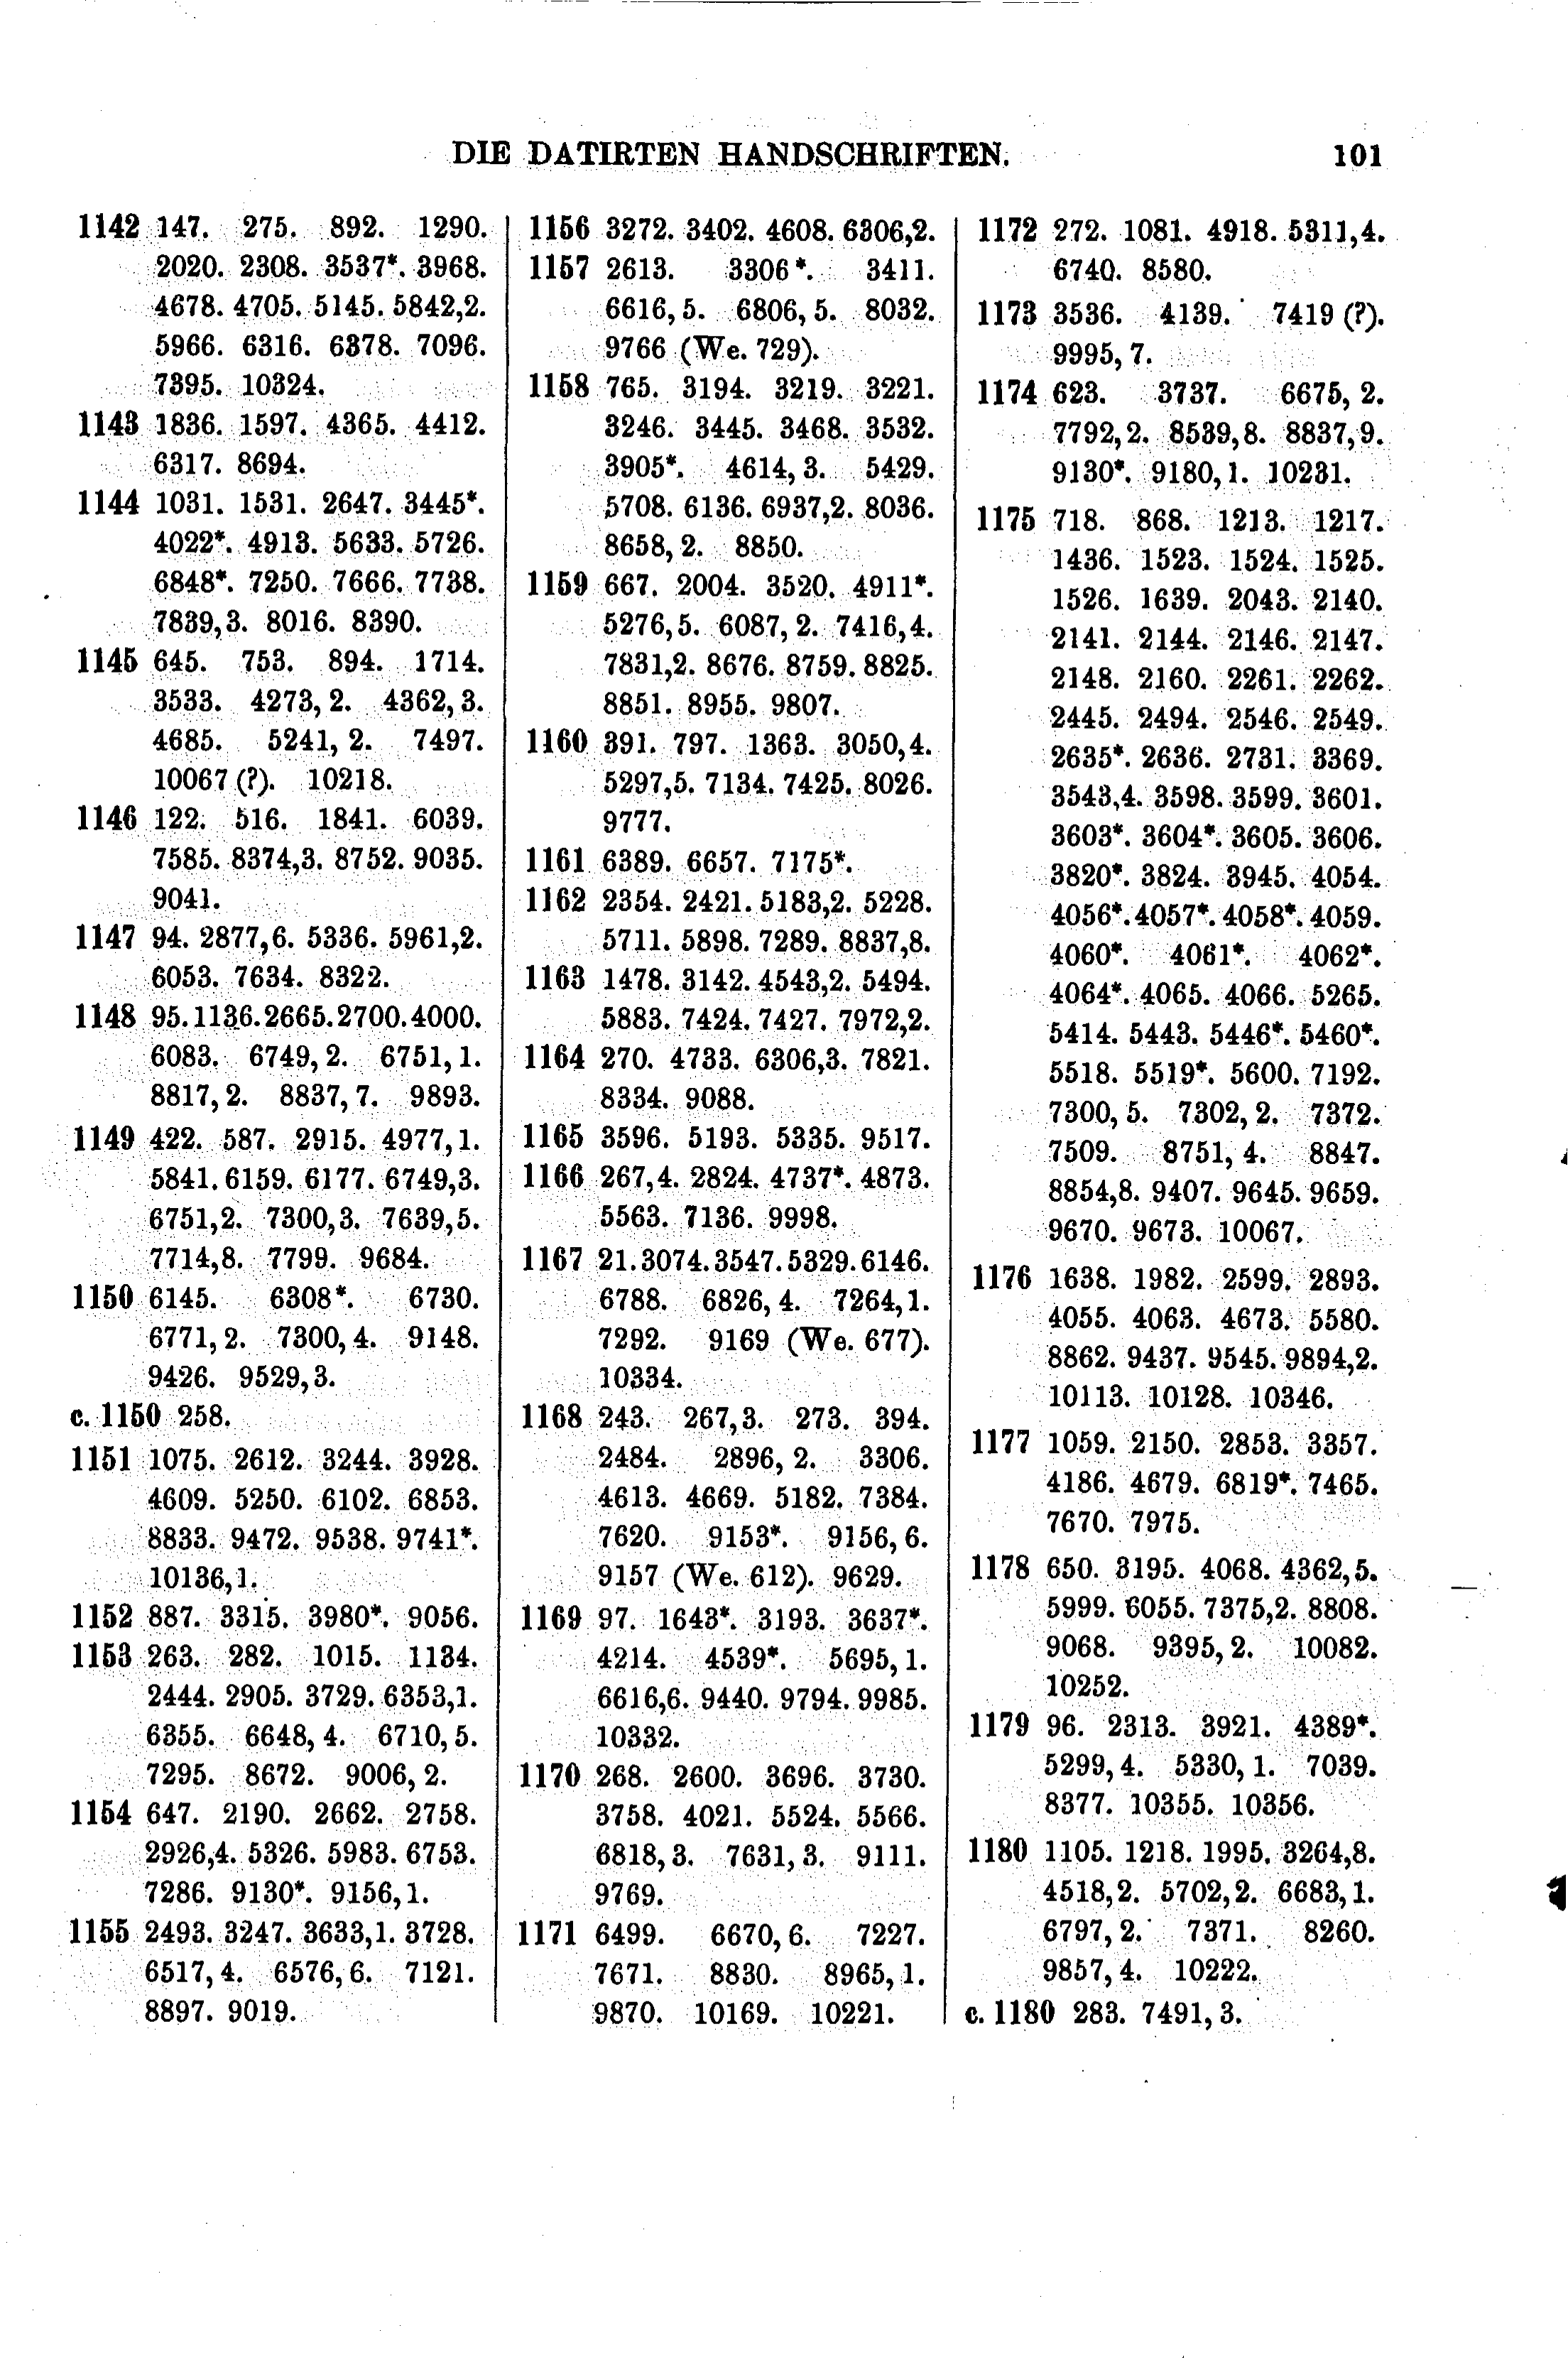 DIE DATIRTEN HANDSCHRIFTEN.
101
1142 147. 275. 892. 1290.
2020. 2308. 3537*. 3968.
4678. 4705. 5145. 5842,2.
5966. 6316. 6378. 7096.
7395. 10324.
1143 1836. 1597. 4365. 4412.
6317. 8694.
1144 1031. 1531. 2647. 3445*.
4022*. 4913. 5633. 5726.
6848*. 7250. 7666. 7738.
7839,3. 8016. 8390.
1145 645. 753. 894. 1714.
3533. 4273, 2. 4362, 3.
4685. 5241, 2. 7497.
10067 (?). 10218.
1146 122. 516. 1841. 6039.
7585. 8374,3. 8752. 9035.
9041.
1147 94. 2877,6. 5336. 5961,2.
6053. 7634. 8322.
1148 95. 1136. 2665. 2700. 4000.
6083. 6749, 2. 6751, 1.
8817, 2. 8837, 7. 9893.
1149 422. 587. 2915. 4977, 1.
5841. 6159. 6177. 6749,3.
6751,2. 7300,3. 7639,5.
7714,8. 7799. 9684.
1150 6145. 6308*. 6730.
6771, 2. 7300, 4. 9148.
9426. 9529,3.
c. 1150 258.
1151 1075. 2612. 3244. 3928.
4609. 5250. 6102. 6853.
8833. 9472. 9538. 9741*.
10136,1.
1152 887. 3315. 3980*. 9056.
1153 263. 282. 1015. 1134.
2444. 2905. 3729. 6353,1.
6355. 6648, 4. 6710, 5.
7295. 8672. 9006, 2.
1154 647. 2190. 2662. 2758.
2926,4. 5326. 5983. 6753.
7286. 9130*. 9156,1.
1155 2493. 3247. 3633,1. 3728.
6517, 4. 6576, 6. 7121.
8897. 9019.
1156 3272. 3402. 4608. 6306,2.
1157 2613. 3306*. 3411.
6616, 5. 6806, 5. 8032.
9766 (We. 729).
1158 765. 3194. 3219. 3221.
3246. 3445. 3468. 3532.
3905*. 4614, 3. 5429.
5708. 6136. 6937,2. 8036.
8658, 2. 8850.
1159 667. 2004. 3520. 4911*.
5276,5. 6087, 2. 7416,4.
7831,2. 8676. 8759. 8825.
8851. 8955. 9807.
1160 391. 797. 1363. 3050,4.
5297,5. 7134. 7425. 8026.
9777.
1161 6389. 6657. 7175*.
1162 2354. 2421. 5183,2. 5228.
5711. 5898. 7289. 8837,8.
1163 1478. 3142. 4543,2. 5494.
5883. 7424. 7427. 7972,2.
1164 270. 4733. 6306,3. 7821.
8334. 9088.
1165 3596. 5193. 5335. 9517.
1166 267,4. 2824. 4737*. 4873.
5563. 7136. 9998.
1167 21. 3074. 3547. 5329. 6146.
6788. 6826, 4. 7264, 1.
7292. 9169 (We. 677).
10334.
1168 243. 267,3. 273. 394.
2484. 2896, 2. 3306.
4613. 4669. 5182. 7384.
7620. 9153*. 9156, 6.
9157 (We. 612). 9629.
1169 97. 1643*. 3193. 3637*.
4214. 4539*. 5695, 1.
6616,6. 9440. 9794. 9985.
10332.
1170 268. 2600. 3696. 3730.
3758. 4021. 5524. 5566.
6818, 3. 7631, 3. 9111.
9769.
1171 6499. 6670, 6. 7227.
7671. 8830. 8965, 1.
9870. 10169. 10221.
1172 272. 1081. 4918. 5311,4.
6740. 8580.
1173 3536. 4139. 7419 (?).
9995, 7.
1174 623. 3737. 6675, 2.
7792, 2. 8539, 8. 8837, 9.
9130*. 9180, 1. 10231.
1175 718. 868. 1213. 1217.
1436. 1523. 1524. 1525.
1526. 1639. 2043. 2140.
2141. 2144. 2146. 2147.
2148. 2160. 2261. 2262.
2445. 2494. 2546. 2549.
2635*. 2636. 2731. 3369.
3543,4. 3598. 3599. 3601.
3603*. 3604*. 3605. 3606.
3820*. 3824. 3945. 4054.
4056*. 4057*. 4058*. 4059.
4060*. 4061*. 4062*.
4064*. 4065. 4066. 5265.
5414. 5443. 5446*. 5460*.
5518. 5519*. 5600. 7192.
7300, 5. 7302, 2. 7372.
7509. 8751, 4. 8847.
8854,8. 9407. 9645. 9659.
9670. 9673. 10067.
1176 1638. 1982. 2599. 2893.
4055. 4063. 4673. 5580.
8862. 9437. 9545. 9894,2.
10113. 10128. 10346.
1177 1059. 2150. 2853. 3357.
4186. 4679. 6819*. 7465.
7670. 7975.
1178 650. 3195. 4068. 4362, 5.
5999. 6055. 7375,2. 8808.
9068. 9395, 2. 10082.
10252.
1179 96. 2313. 3921. 4389*.
5299, 4. 5330, 1. 7039.
8377. 10355. 10356.
1180 1105. 1218. 1995. 3264,8.
4518,2. 5702,2. 6683,1.
6797, 2. 7371. 8260.
9857, 4. 10222.
c. 1180 283. 7491, 3.